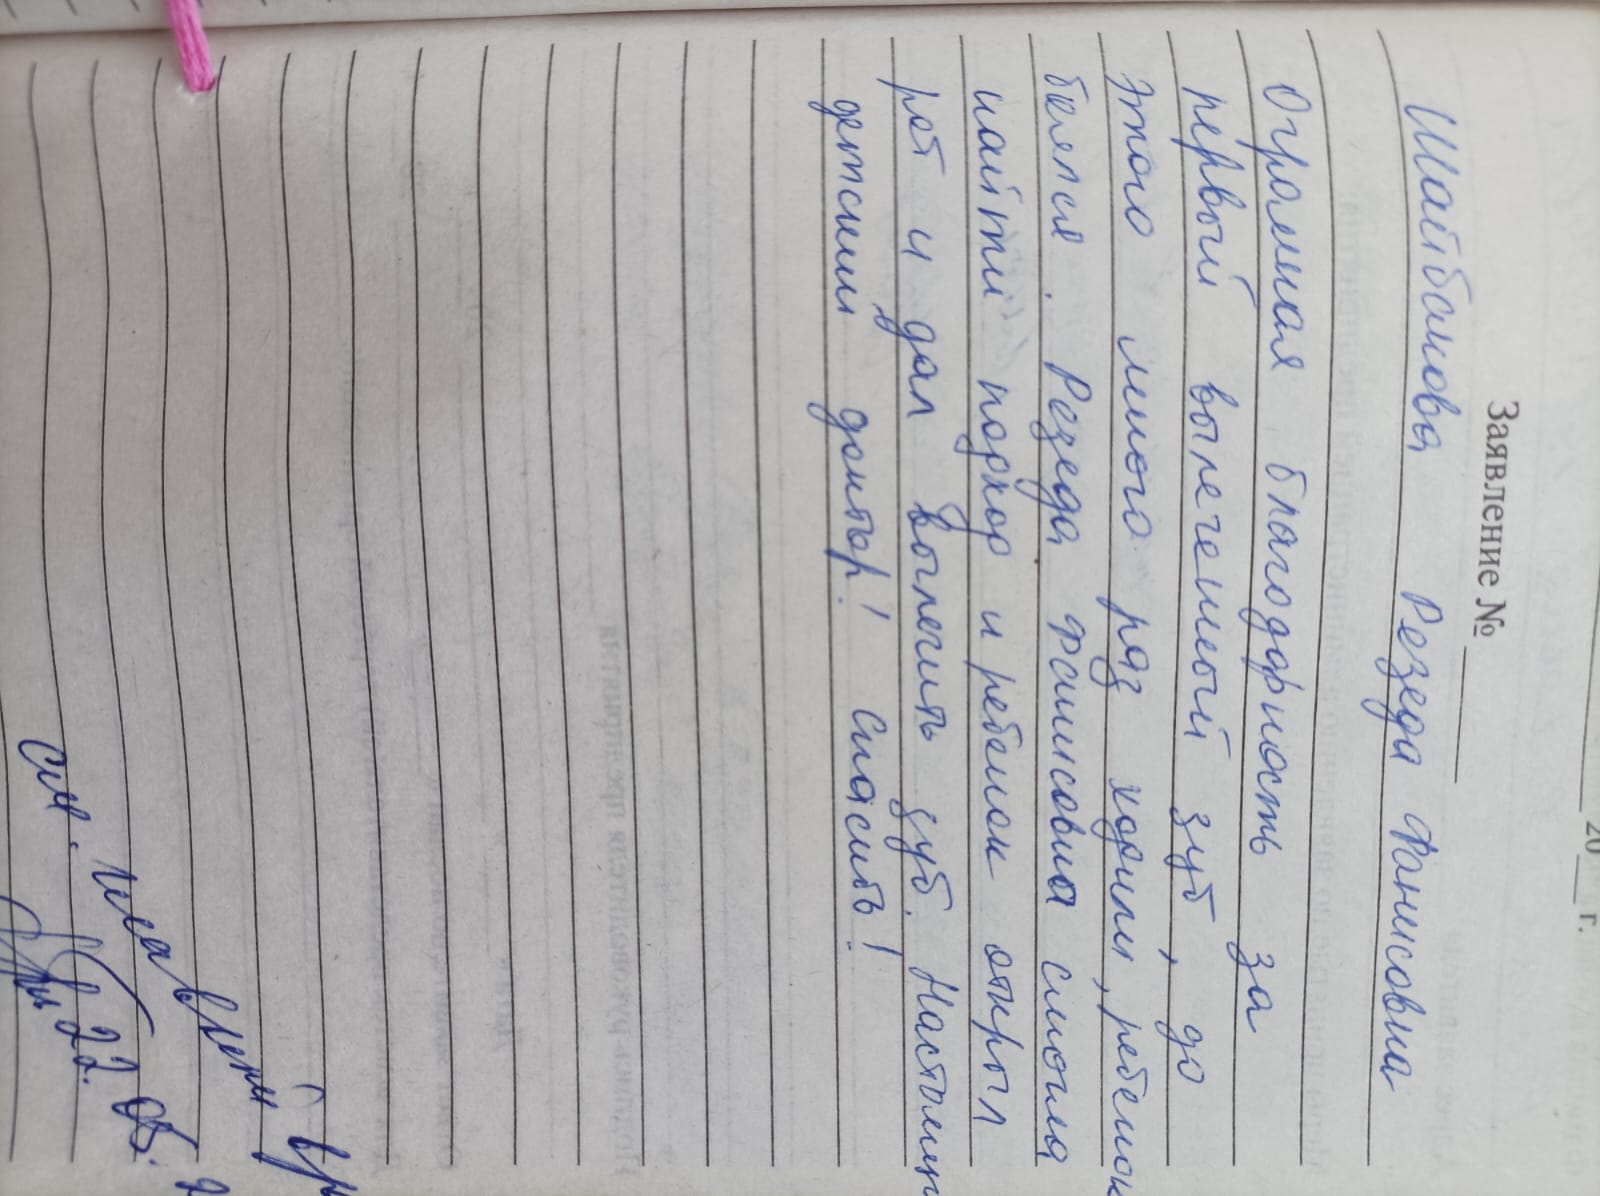 20 г.
Заявление №
Шайбакова Резеда Фанисовна
Огромная благодарность за
первый вылеченный зуб, до
этого много раз ходили, ребенок
боялся. Резеда Фанисовна смогла
найти подход и ребенок открыл
рот и дал вылечить зуб. Настоящи
детский доктор! Спасибо!
22. 05. 2